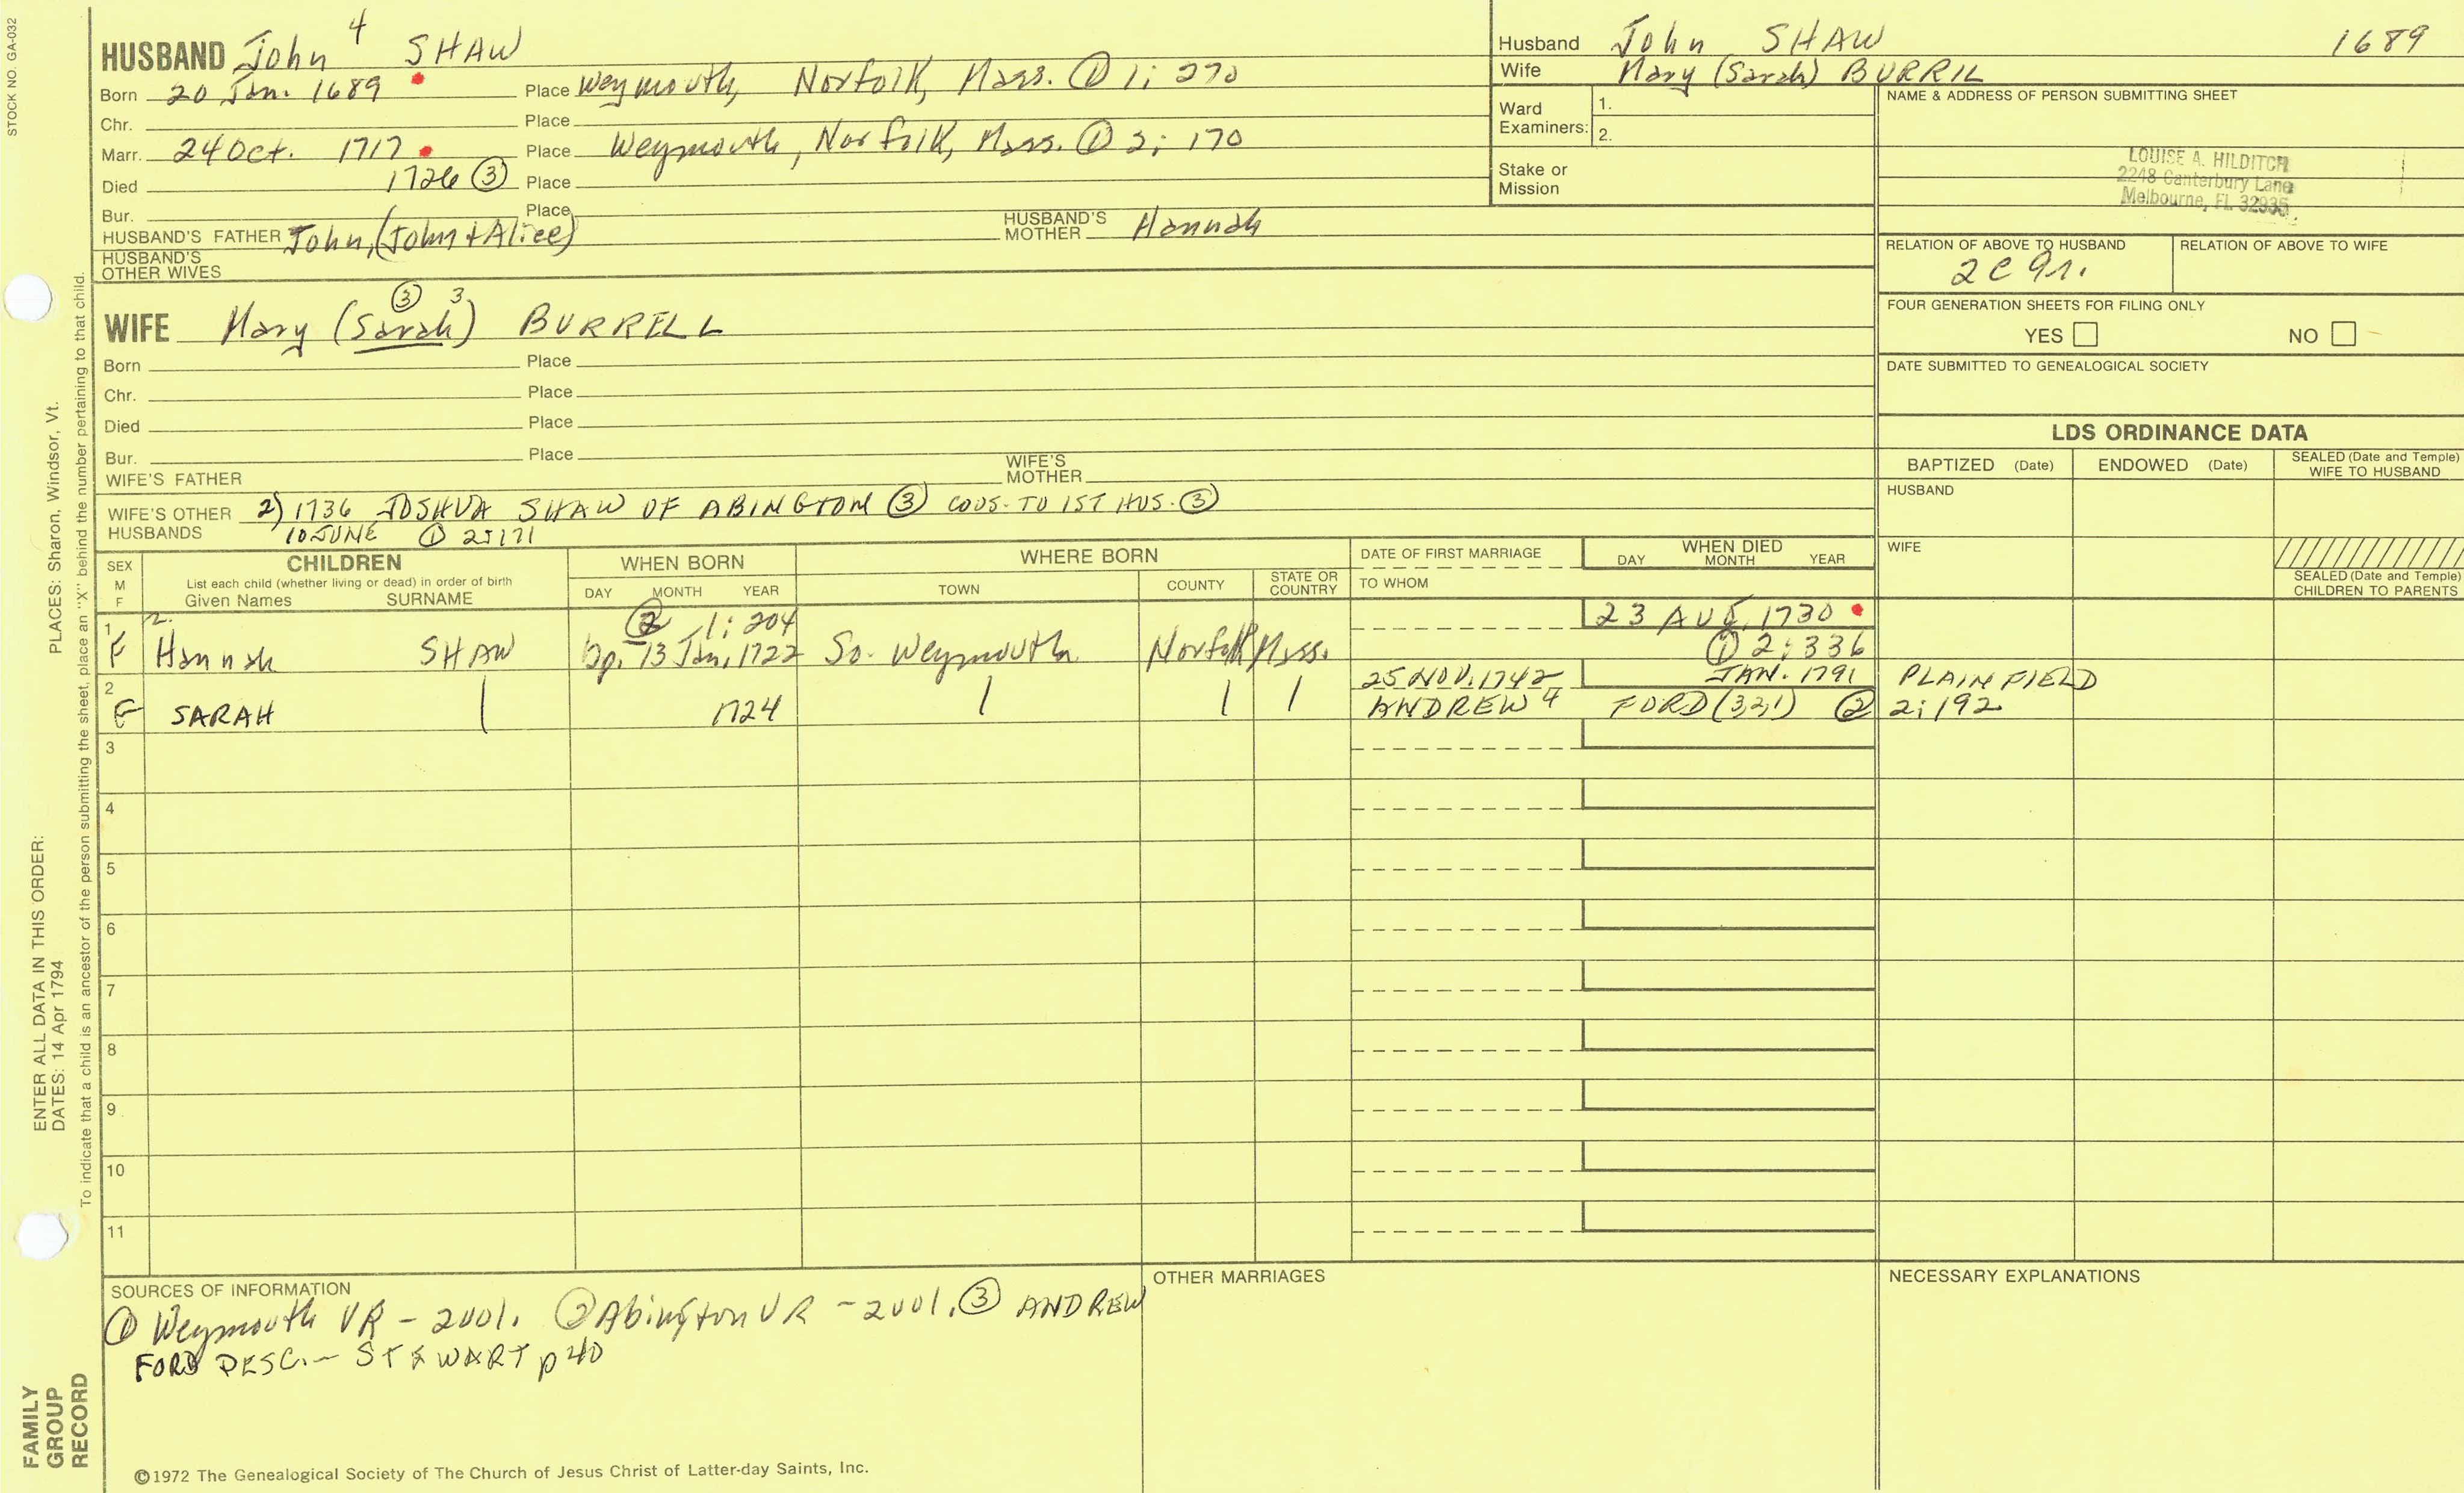 STOCK NO. GA-032
HUSBAND John 4 SHAW
Born 20 Jan. 1689 Place Weymouth, Norfolk, Mass. ① 1; 270
Chr. Place
Marr. 24 Oct. 1717 Place Weymouth, Norfolk, Mass. ① 2; 170
Died 1726 ③ Place
Bur. Place
HUSBAND'S FATHER John, (John + Alice) HUSBAND'S MOTHER Hannah
HUSBAND'S OTHER WIVES
Husband John SHAW 1689
Wife Mary (Sarah) BURRIL
Ward Examiners: 1.
2.
Stake or Mission
NAME & ADDRESS OF PERSON SUBMITTING SHEET
LOUISE A. HILDITCH
2248 Canterbury Lane
Melbourne, FL 32935
RELATION OF ABOVE TO HUSBAND RELATION OF ABOVE TO WIFE
2C 9r.
FOUR GENERATION SHEETS FOR FILING ONLY
YES NO
DATE SUBMITTED TO GENEALOGICAL SOCIETY
③ 3
WIFE Mary (Sarah) BURRELL
Born Place
Chr. Place
Died Place
Bur. Place
WIFE'S FATHER WIFE'S MOTHER
WIFE'S OTHER HUSBANDS 2) 1736 JOSHUA SHAW OF ABINGTON ③ COUS. TO 1ST HUS. ③
10 JUNE ① 2; 171
LDS ORDINANCE DATA
BAPTIZED (Date) ENDOWED (Date) SEALED (Date and Temple) WIFE TO HUSBAND
HUSBAND
WIFE
SEALED (Date and Temple) CHILDREN TO PARENTS
SEX M F
CHILDREN
List each child (whether living or dead) in order of birth
Given Names SURNAME
WHEN BORN
DAY MONTH YEAR
WHERE BORN
TOWN COUNTY STATE OR COUNTRY
DATE OF FIRST MARRIAGE
TO WHOM
WHEN DIED
DAY MONTH YEAR
② 1: 204 23 AUG. 1730
1 F Hannah SHAW bp. 13 Jan. 1722 So. Weymouth Norfolk Mass. ① 2: 336
25 NOV. 1742 JAN. 1791 PLAINFIELD
2 F SARAH 1724 ANDREW 4 FORD (3,2,1) ② 2; 192
3
4
5
6
7
8
9
10
11
SOURCES OF INFORMATION
① Weymouth VR - 2001. ② Abington VR - 2001. ③ ANDREW
FORD DESC. - STEWART p 40
OTHER MARRIAGES
NECESSARY EXPLANATIONS
©1972 The Genealogical Society of The Church of Jesus Christ of Latter-day Saints, Inc.
FAMILY GROUP RECORD
ENTER ALL DATA IN THIS ORDER:
DATES: 14 Apr 1794 PLACES: Sharon, Windsor, Vt.
To indicate that a child is an ancestor of the person submitting the sheet, place an "X" behind the number pertaining to that child.